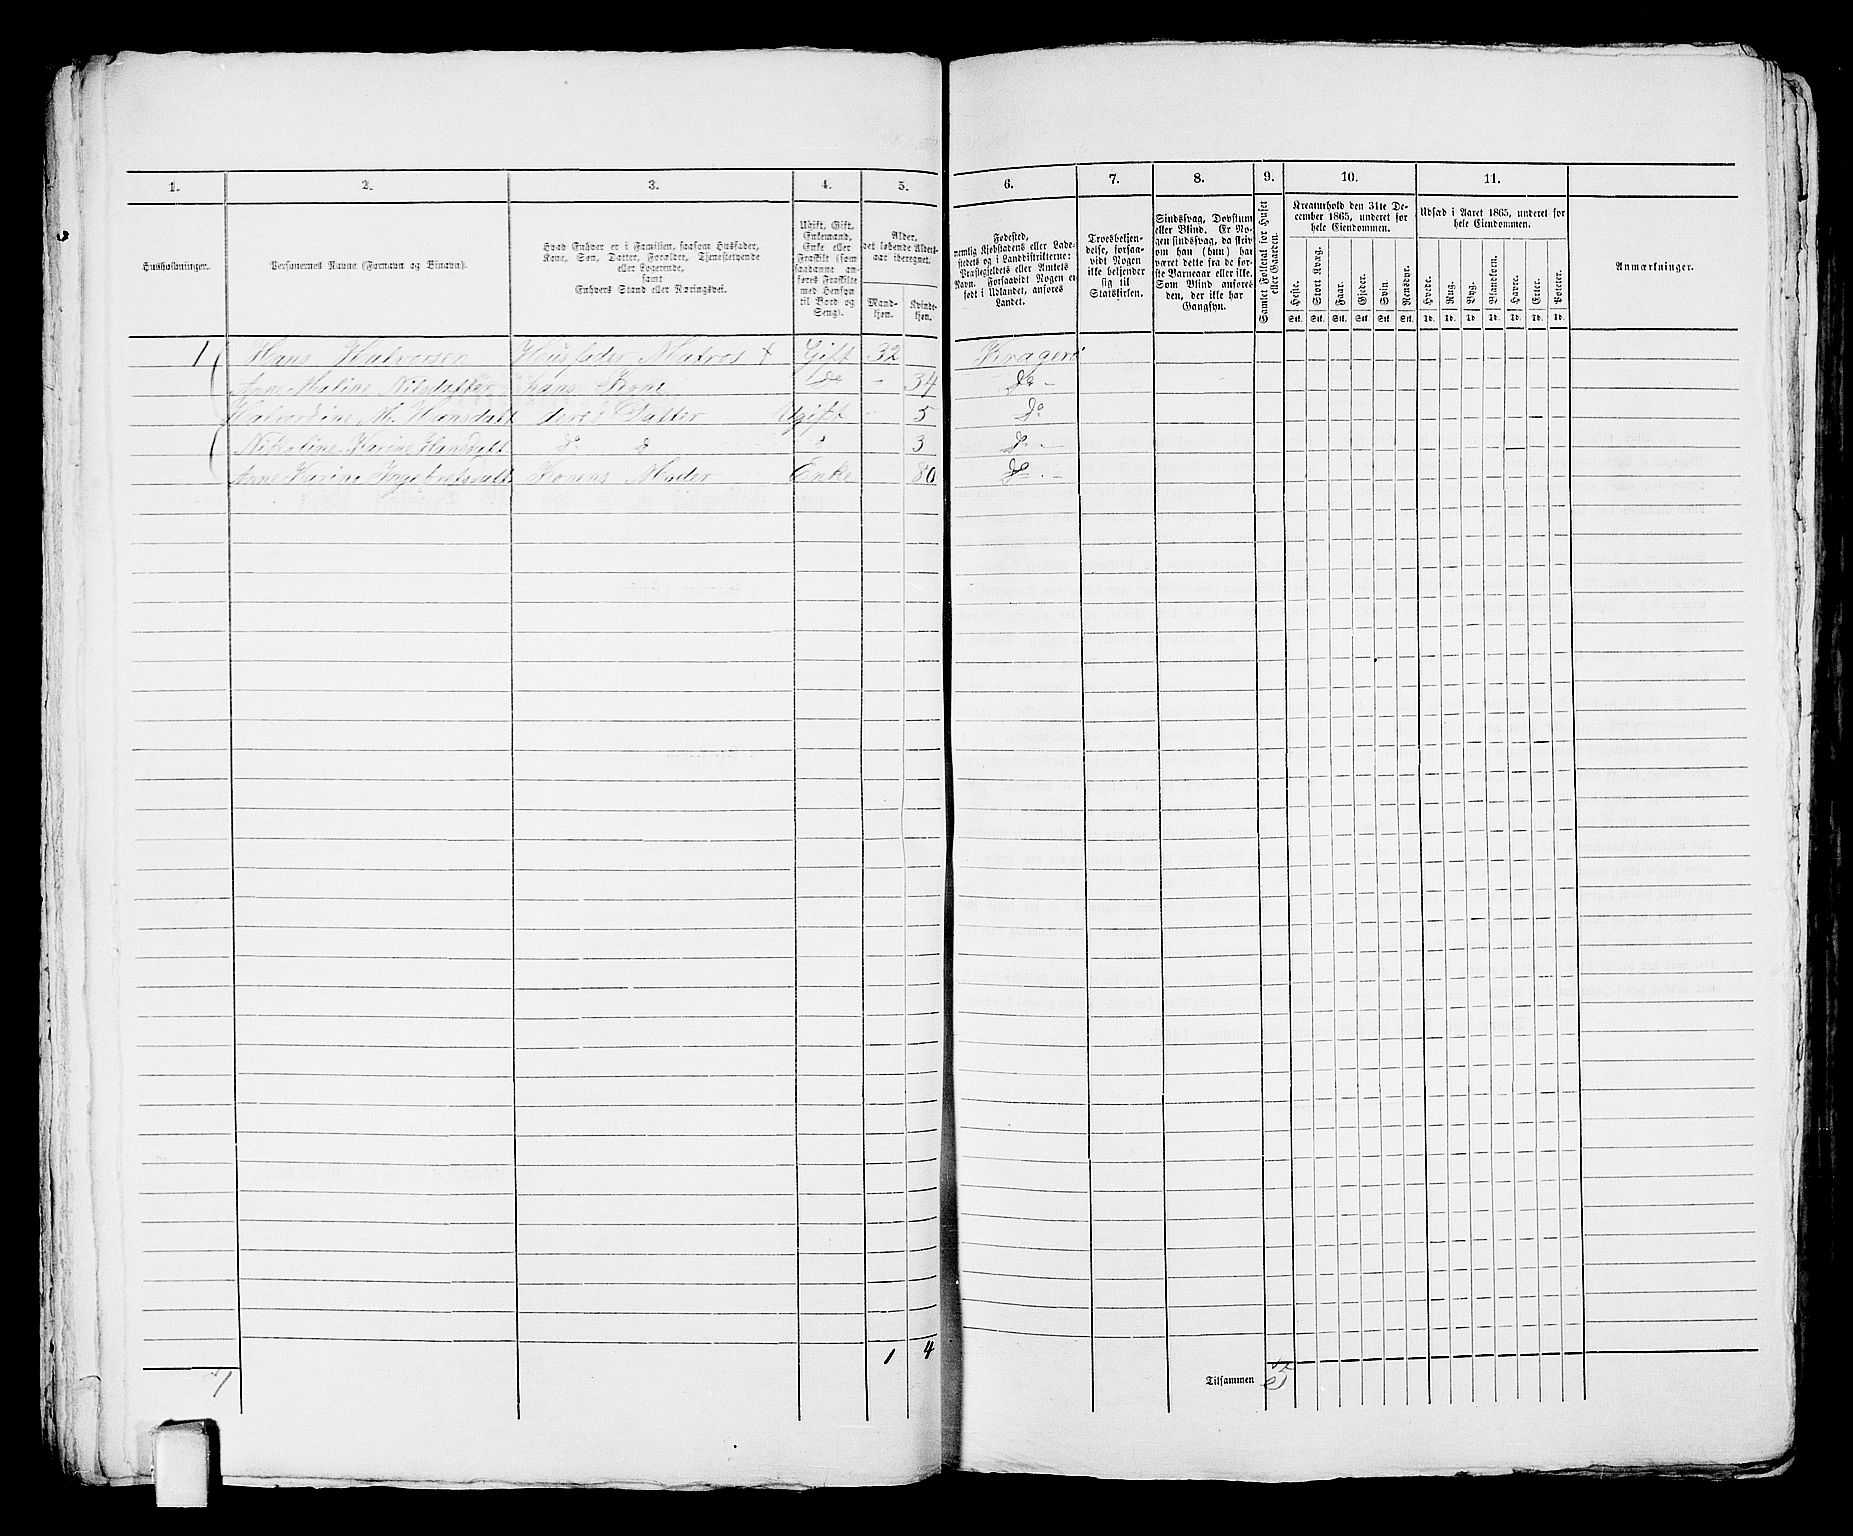 1. 2. 3. 4. 5. 6. 7. 8. 9. 10. 11.
Husholdninger.
Personernes Navne (Fornavn og Binavn).
Hvad Enhver er i Familien, saasom Husfader,
Kone, Søn, Datter, Forældre, Tjenestetyende
eller Logerende,
samt
Enhvers Stand eller Næringsvei.
Ugift, Gift,
Enkemand,
Enke eller
Fraskilt (som
saadanne an-
føres Fraskilte
med Hensyn
til Bord og
Seng).
Alder,
det løbende Alders-
aar iberegnet.
Mand-
kjøn.
Kvinde-
kjøn.
Fødested,
nemlig Kjøbstadens eller Lade-
stedets og i Landdistrikterne:
Præstegjeldets eller Amtets
Navn. Forsaavidt Nogen er
født i Udlandet, anføres
Landet.
Troesbekjen-
delse, forsaa-
vidt Nogen
ikke bekjender
sig til
Statskirken.
Sindssvag, Døvstum
eller Blind. Er No-
gen sindssvag, da skriv
om han (hun) har
været dette fra de før-
ste Barneaar eller ikke.
Som Blind anføres
den, der ikke har
Gangsyn.
Samlet Folketal for Huset
eller Gaarden.
Kreaturhold den 31te De-
cember 1865, underet for
hele Eiendommen.
Heste. Stort Kvæg. Faar. Gjeder. Svin. Rensdyr.
Stk. Stk. Stk. Stk. Stk. Stk.
Udsæd i Aaret 1865, underet for
hele Eiendommen.
Hvede. Rug. Byg. Blandkorn. Havre. Erter. Poteter.
Td. Td. Td. Td. Td. Td. Td.
Anmærkninger.
1 Hans Halvorsen Husfader Matros + Gift 32 Kragerø
Anne Maline Nilsdatter hans Kone Do - 34 Do -
Halvordine M. Hansdatt deres Datter Ugift 5 Do
Nikoline Karine Hansdatt Do Do 3 Do -
Anne Karine Ingebretsdatt Konens Moder Enke 80 Do -
1 4
1
Tilsammen 5